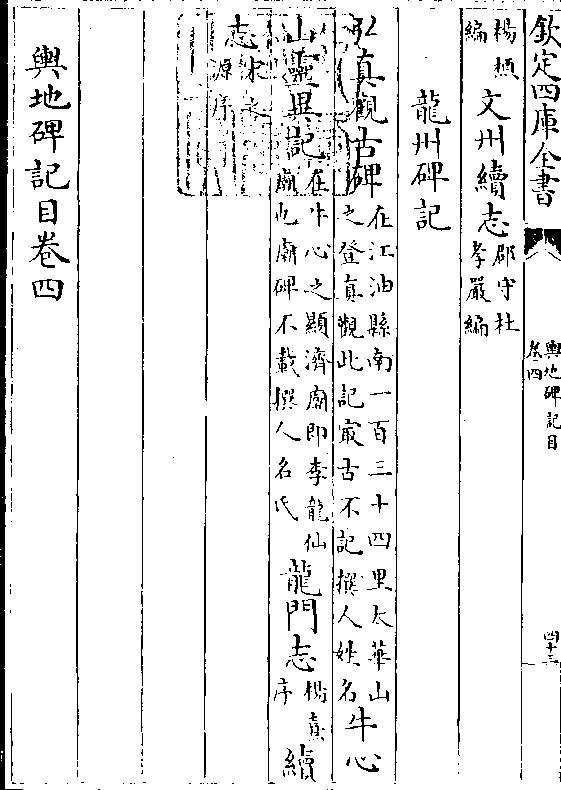 欽定四庫全書
輿地碑記目
卷四
四十三
楊楨
編
文州續志
郡守杜
孝嚴編
龍州碑記
弘真觀古碑
在江油縣南一百三十四里太華山
之登真觀此記最古不記撰人姓名
牛心
山靈異記
在牛心之顯濟廟即李龍仙
廟也廟碑不載撰人名氏
龍門志
楊熹
序
續
志
源序
輿地碑記目卷四